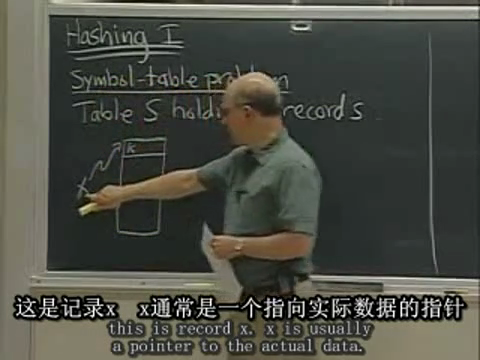 Hashing I
Symbol-table problem
Table S holding records
k
x
这是记录x x通常是一个指向实际数据的指针
this is record x. x is usually
a pointer to the actual data.